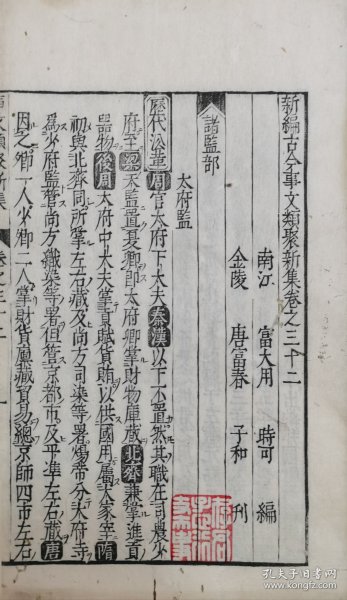 新編古今事文類聚新集卷之三十二
南江 富大用 時可 編
金陵 唐富春 子和 刊
諸監部
太府監
歷代沿革周官太府下大夫秦漢以下不置然其職在司農少
府至梁天監置夏卿即太府卿掌財物庫藏北齊兼掌進貢
器物後周太府中大夫掌貢賦貨賄以供國用屬大冢宰隋
初與北齊同所掌左右藏及尚方司染等署煬帝分太府寺
爲少府監管尚方織染等署但管京都市及平準左右藏唐
因之卿一人少卿二人掌財貨廩藏貿易總京師四市左右
孔夫子旧书网